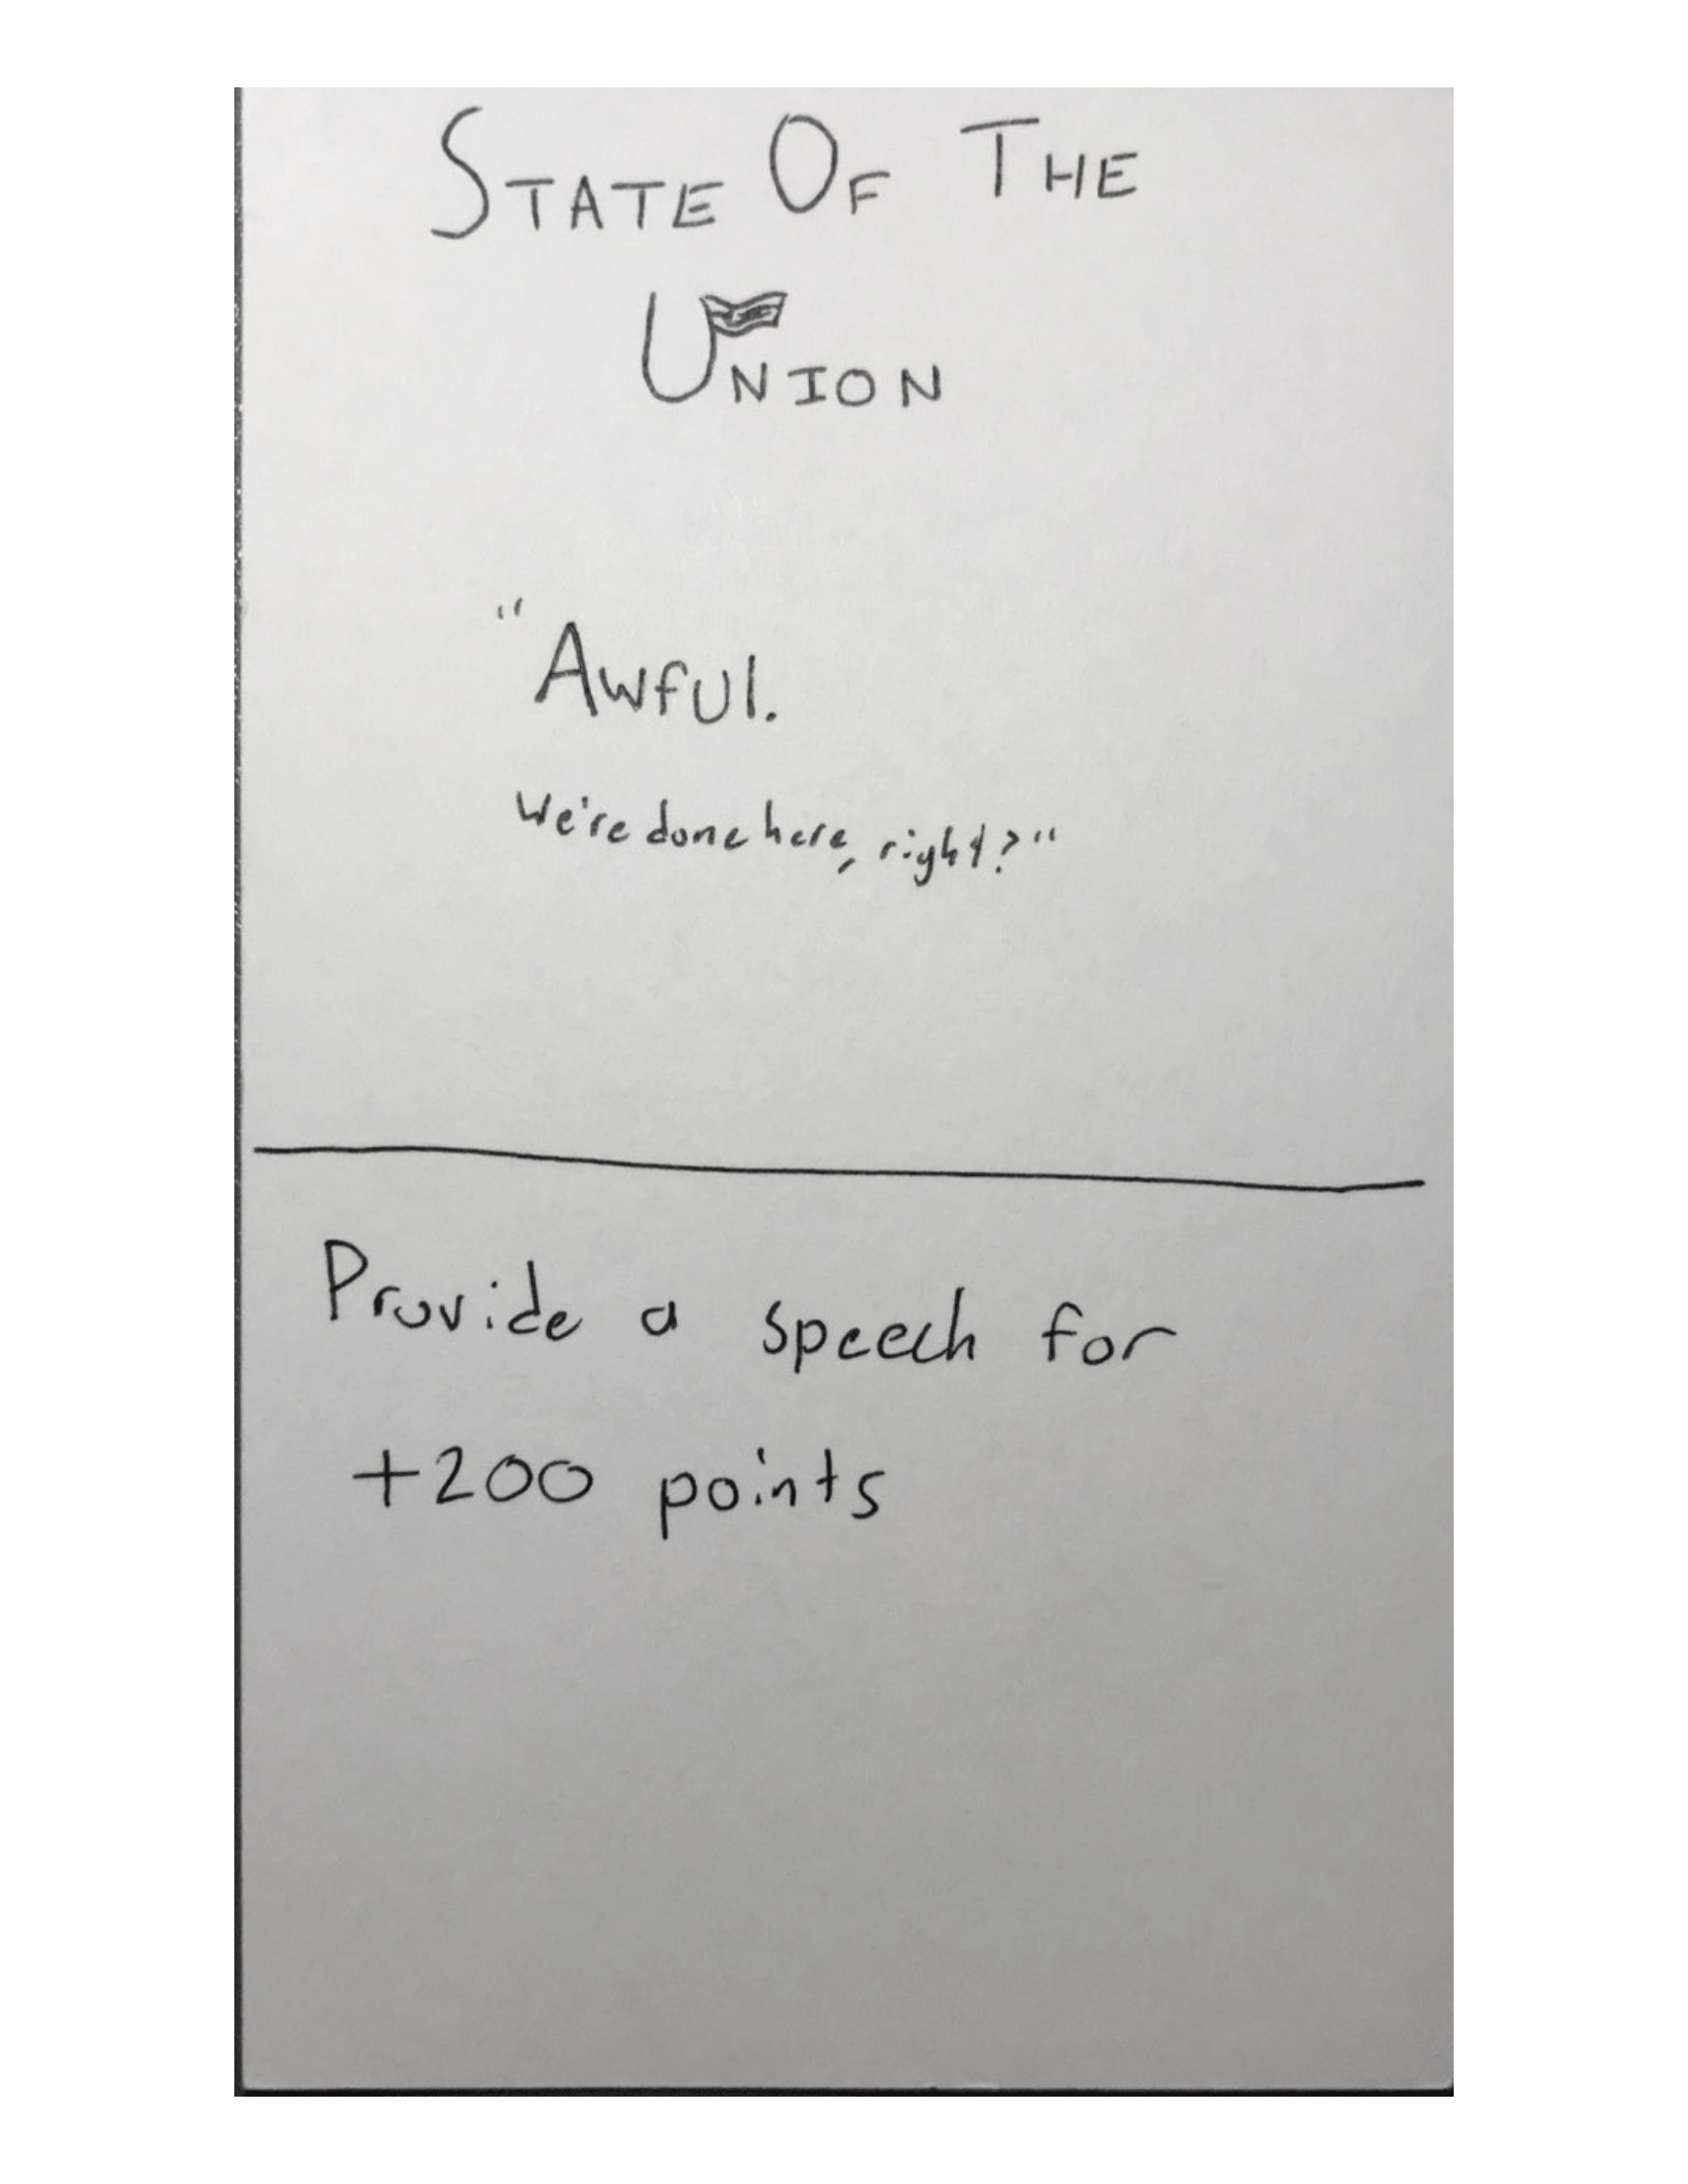 State Of The
Union
"Awful.
We're done here, right?"
Provide a speech for
+200 points